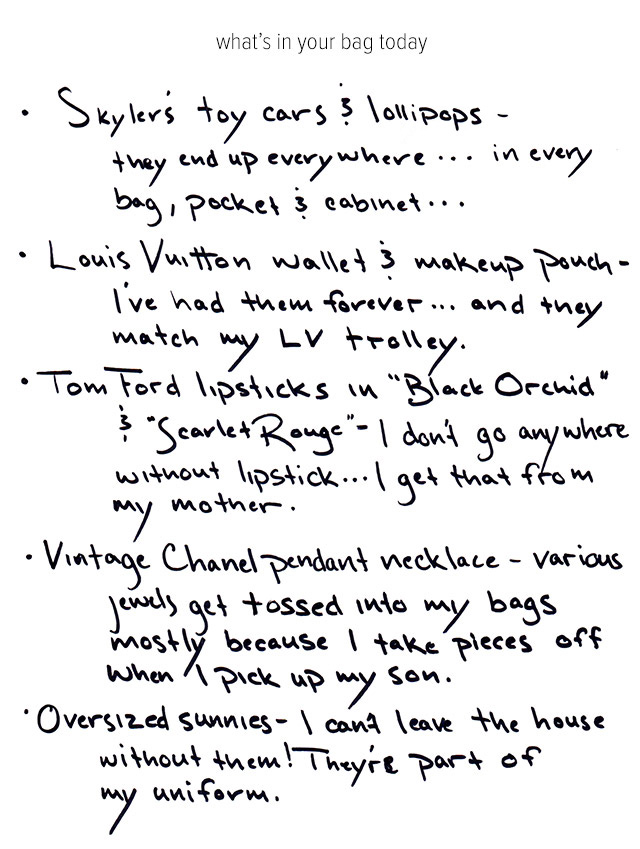 what's in your bag today
• Skyler's toy cars & lollipops -
they end up everywhere... in every
bag, pocket & cabinet...
• Louis Vuitton wallet & makeup pouch -
I've had them forever... and they
match my LV trolley.
• Tom Ford lipsticks in "Black Orchid"
& "Scarlet Rouge" - I don't go anywhere
without lipstick... I get that from
my mother.
• Vintage Chanel pendant necklace - various
jewels get tossed into my bags
mostly because I take pieces off
when I pick up my son.
• Oversized sunnies - I can't leave the house
without them! They're part of
my uniform.